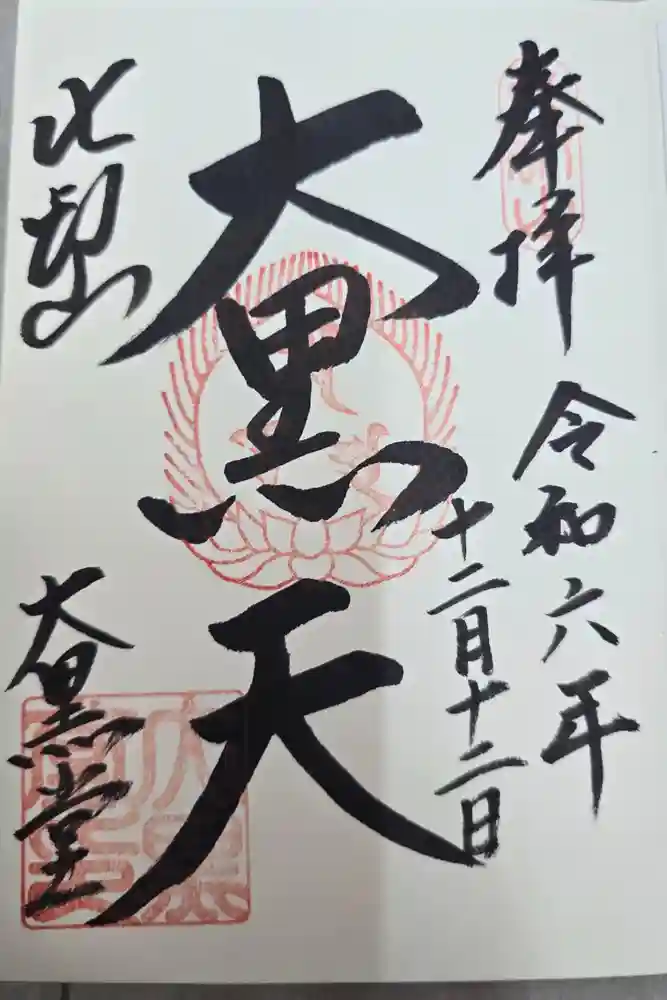 奉拝
令和六年
十二月十二日
大黒天
比叡山
大黒堂